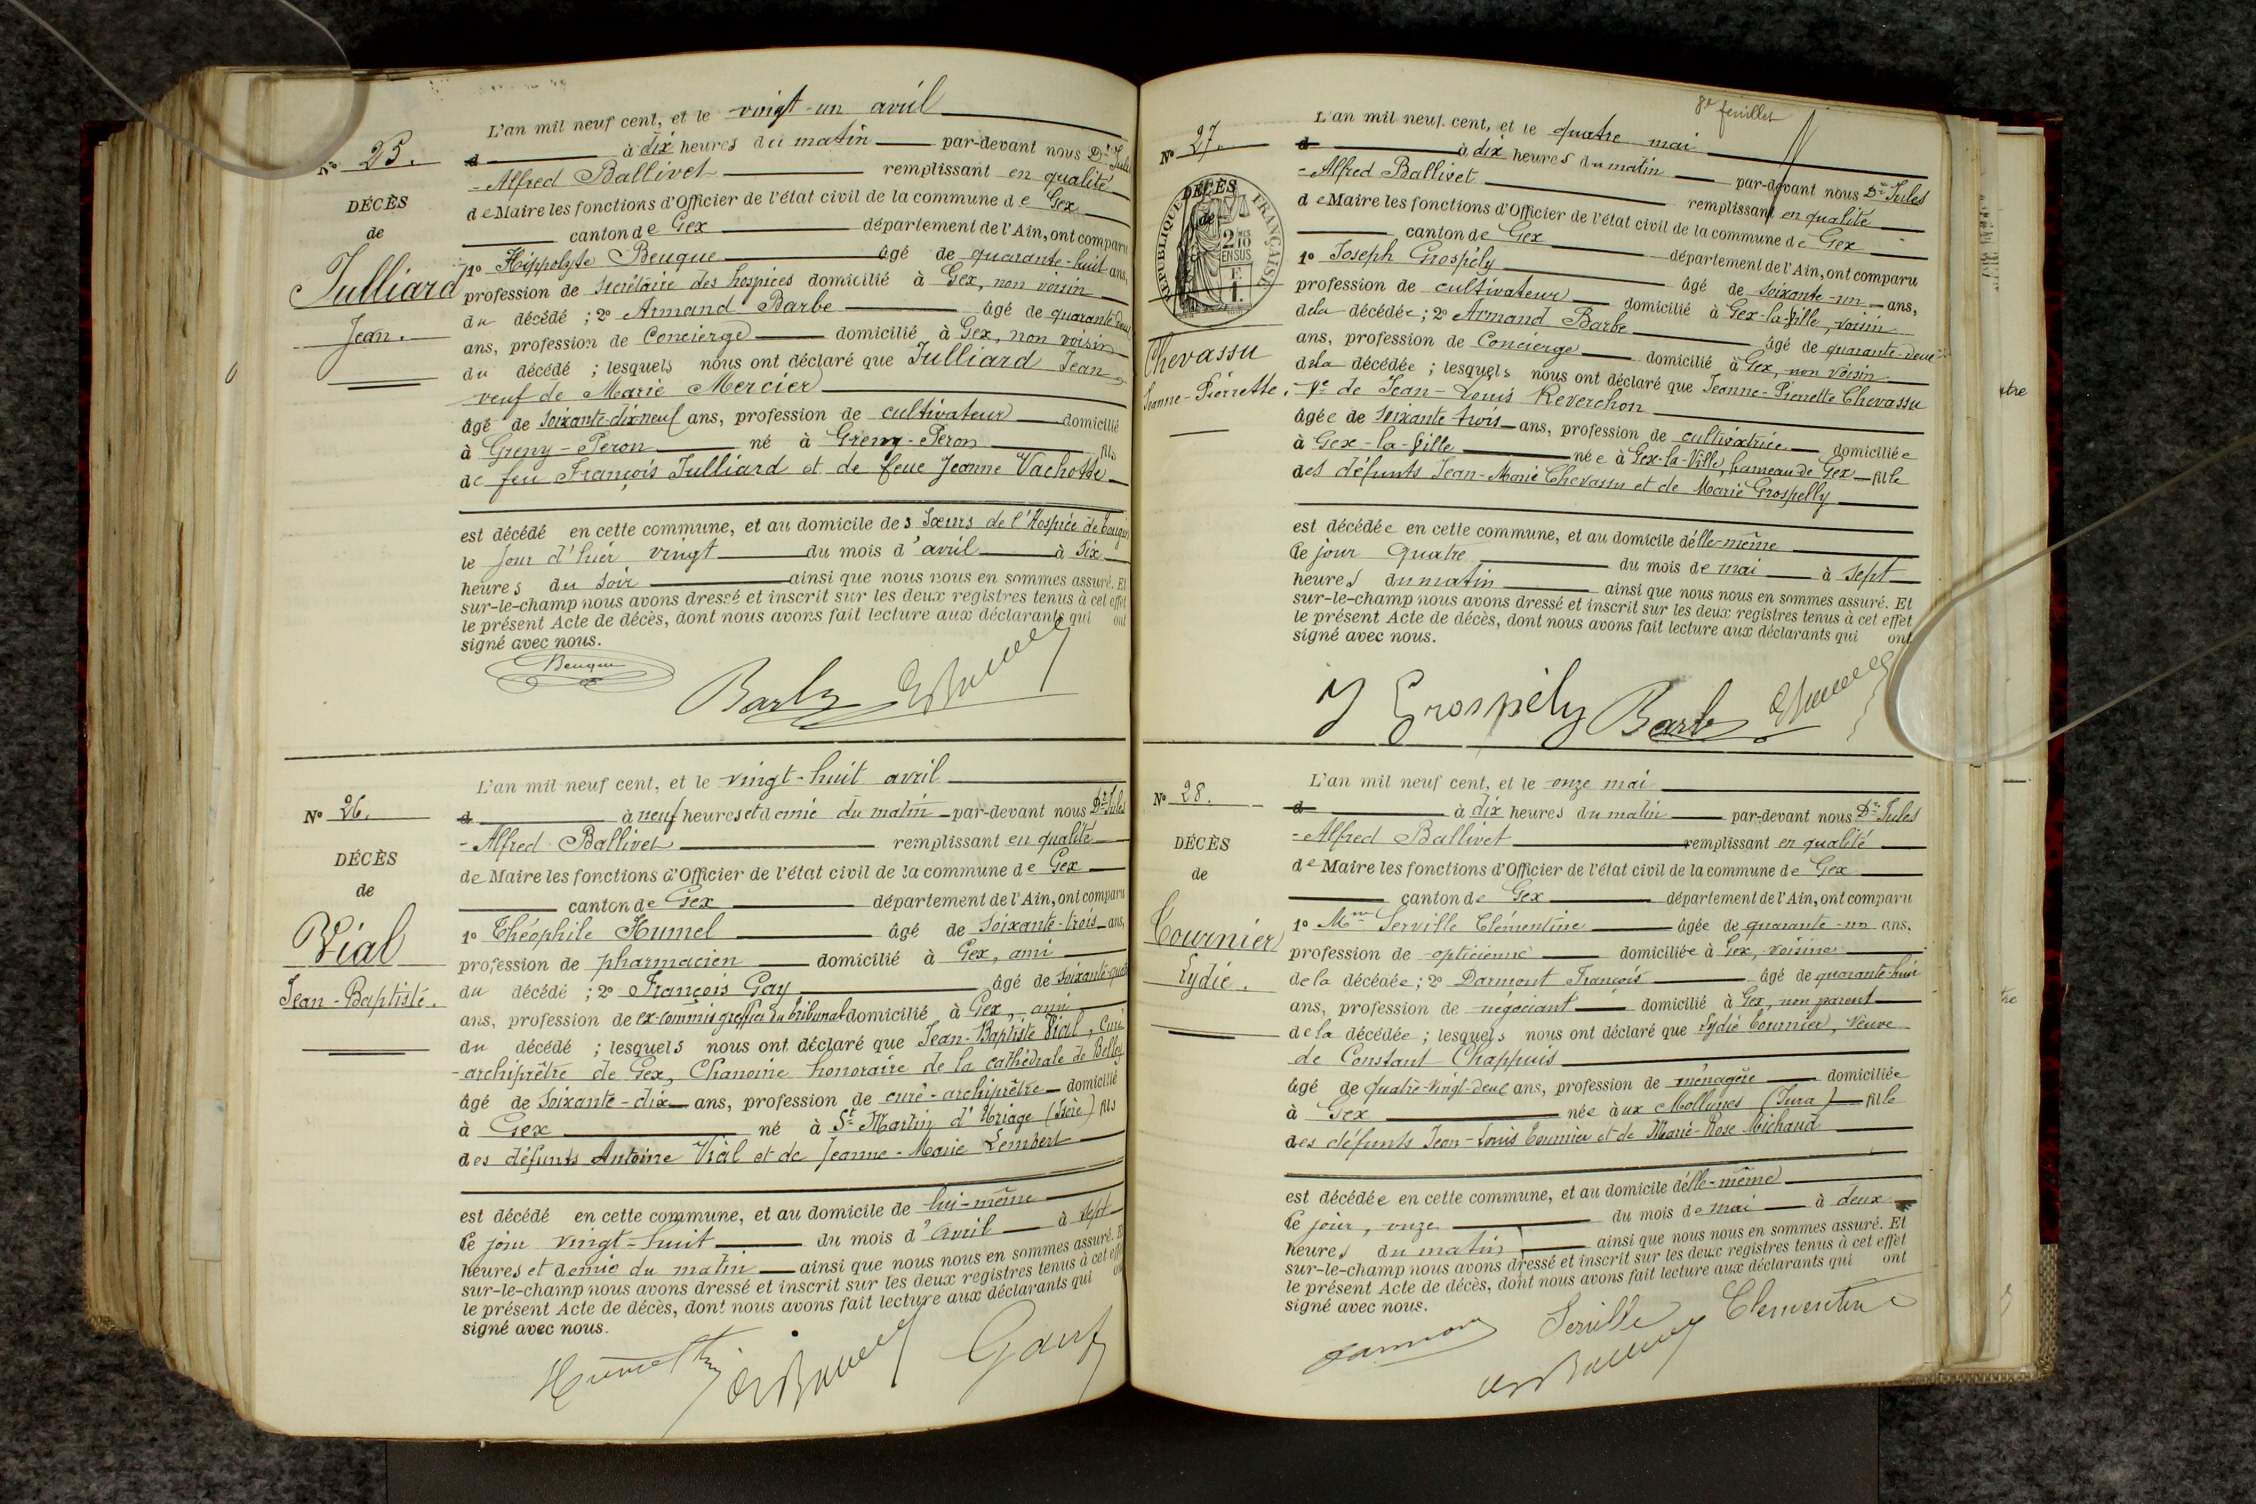 L'an mil neuf cent, et le vingt-un avril
Nº 25.
d à dix heures du matin par-devant nous Dr Jules
DÉCÈS
de
Julliard
Jean.
-Alfred Ballivet remplissant en qualité
de Maire les fonctions d'Officier de l'état civil de la commune de Gex
canton de Gex département de l'Ain, ont comparu
1º Hippolyte Beuque âgé de quarante-huit ans,
profession de secrétaire des hospices domicilié à Gex, non voisin
du décédé ; 2º Armand Barbe âgé de quarante-deux
ans, profession de Concierge domicilié à Gex, non voisin
du décédé ; lesquels nous ont déclaré que Julliard Jean
veuf de Marie Mercier
âgé de soixante-dix-neuf ans, profession de cultivateur domicilié
à Greny-Péron né à Greny-Péron fils
de feu François Julliard et de feue Jeanne Vachotte
est décédé en cette commune, et au domicile des Sœurs de l'Hospice de Tougin
le jour d'hier vingt du mois d'avril à six
heures du soir ainsi que nous nous en sommes assuré. Et
sur-le-champ nous avons dressé et inscrit sur les deux registres tenus à cet effet
le présent Acte de décès, dont nous avons fait lecture aux déclarants qui ont
signé avec nous.
Beuque
Barbe
L'an mil neuf cent, et le vingt-huit avril
Nº 26.
d à neuf heures et demie du matin par-devant nous Dr Jules
DÉCÈS
de
Vial
Jean-Baptiste.
-Alfred Ballivet remplissant en qualité
de Maire les fonctions d'Officier de l'état civil de la commune de Gex
canton de Gex département de l'Ain, ont comparu
1º Théophile Humel âgé de soixante-trois ans,
profession de pharmacien domicilié à Gex, ami
du décédé ; 2º François Gay âgé de soixante-quatre
ans, profession de ex-commis greffier du tribunal domicilié à Gex, ami
du décédé ; lesquels nous ont déclaré que Jean-Baptiste Vial, Curé
-archiprêtre de Gex, Chanoine honoraire de la cathédrale de Belley
âgé de soixante-dix ans, profession de curé-archiprêtre domicilié
à Gex né à St Martin d'Uriage (Isère) fils
des défunts Antoine Vial et de Jeanne-Marie Lembert
est décédé en cette commune, et au domicile de lui-même
ce jour vingt-huit du mois d'avril à sept
heures et demie du matin ainsi que nous nous en sommes assuré. Et
sur-le-champ nous avons dressé et inscrit sur les deux registres tenus à cet effet
le présent Acte de décès, dont nous avons fait lecture aux déclarants qui ont
signé avec nous.
8e feuillet
L'an mil neuf cent, et le quatre mai
Nº 27.
d à dix heures du matin par-devant nous Dr Jules
DÉCÈS
de
RÉPUBLIQUE FRANÇAISE
2 10mes
EN SUS
Chevassu
Jeanne-Pierrette.
-Alfred Ballivet remplissant en qualité
de Maire les fonctions d'Officier de l'état civil de la commune de Gex
canton de Gex département de l'Ain, ont comparu
1º Joseph Grospély âgé de soixante-un ans,
profession de cultivateur domicilié à Gex-la-Ville, voisin
de la décédée; 2º Armand Barbe âgé de quarante-deux
ans, profession de Concierge domicilié à Gex, non voisin
de la décédée ; lesquels nous ont déclaré que Jeanne-Pierrette Chevassu
Ve de Jean-Louis Reverchon
âgée de soixante trois ans, profession de cultivatrice domiciliée
à Gex-la-Ville née à Gex-la-Ville, hameau de Gex fille
des défunts Jean-Marie Chevassu et de Marie Grospelly
est décédée en cette commune, et au domicile d'elle-même
ce jour quatre du mois de mai à sept
heures du matin ainsi que nous nous en sommes assuré. Et
sur-le-champ nous avons dressé et inscrit sur les deux registres tenus à cet effet
le présent Acte de décès, dont nous avons fait lecture aux déclarants qui ont
signé avec nous.
J Grospély Barbe
L'an mil neuf cent, et le onze mai
Nº 28.
d à dix heures du matin par-devant nous Dr Jules
DÉCÈS
de
Tournier
Lydie.
-Alfred Ballivet remplissant en qualité
de Maire les fonctions d'Officier de l'état civil de la commune de Gex
canton de Gex département de l'Ain, ont comparu
1º Mme Serville Clémentine âgée de quarante-un ans,
profession de opticienne domiciliée à Gex, voisine
de la décédée; 2º Darmont François âgé de quarante-huit
ans, profession de négociant domicilié à Gex, non parent
de la décédée ; lesquels nous ont déclaré que Lydie Tournier, Veuve
de Constant Chappuis
âgé de quatre-vingt-deux ans, profession de ménagère domiciliée
à Gex née à ux Mollunes (Jura) fille
des défunts Jean-Louis Tournier et de Marie-Rose Michaud
est décédée en cette commune, et au domicile d'elle-même
ce jour, onze du mois de mai à deux
heures du matin ainsi que nous nous en sommes assuré. Et
sur-le-champ nous avons dressé et inscrit sur les deux registres tenus à cet effet
le présent Acte de décès, dont nous avons fait lecture aux déclarants qui ont
signé avec nous.
Serville Clementine